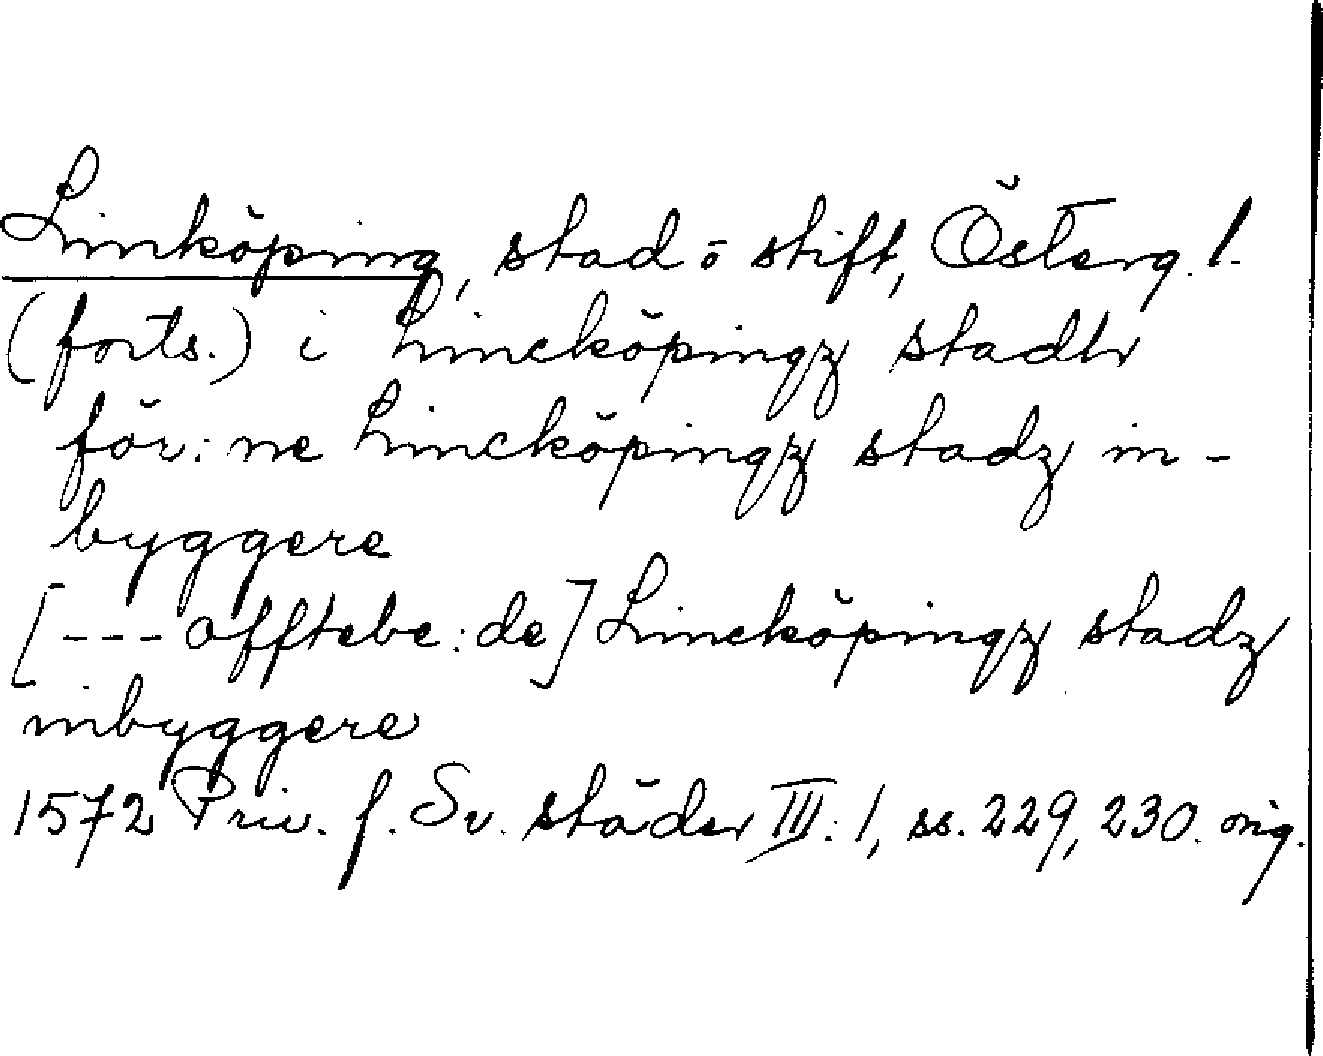 Linköping, stad o stift, Österg. l.
(forts.) i Lincköpingz stadh
för:ne Lincköpingz stadz in-
byggere
[--- offtebe:de] Lincköpingz stadz
inbyggere
1572 Priv. f. Sv. städer III:1, ss. 229, 230. orig.